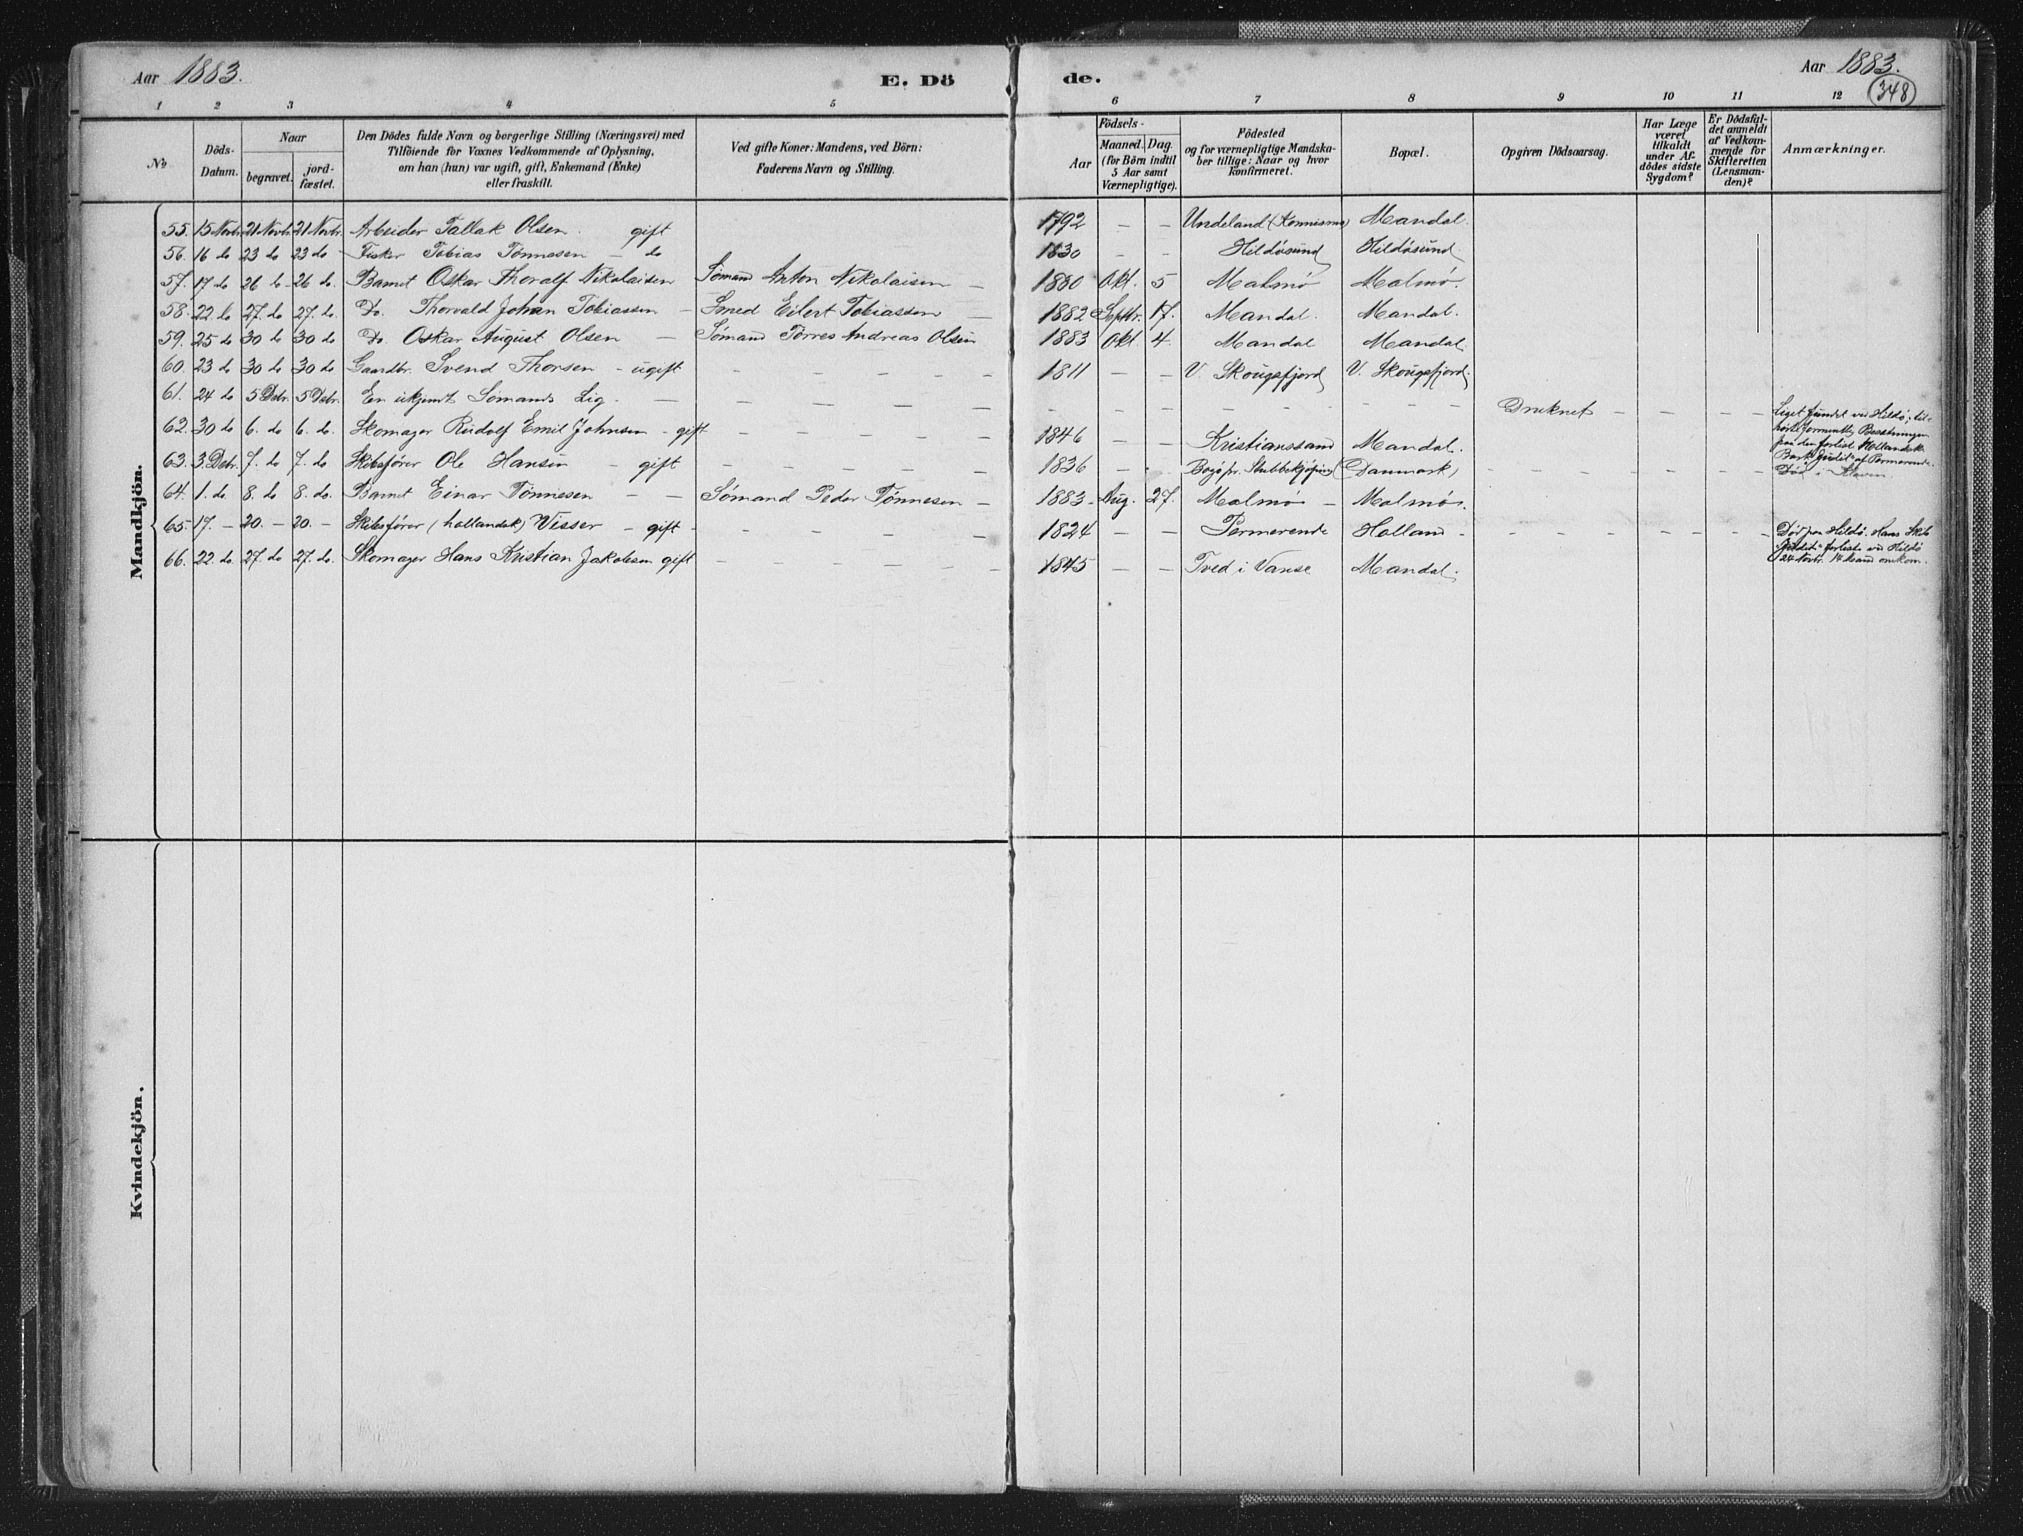 Aar 1883. E. Dö de. Aar 1883.
348
1 2 3 4 5 6 7 8 9 10 11 12
No
Döds-Datum.
Naar
begravet. jord-fæstet.
Den Dödes fulde Navn og borgerlige Stilling (Næringsvei) med
Tilföiende for Voxnes Vedkommende af Oplysning,
om han (hun) var ugift, gift, Enkemand (Enke)
eller fraskilt.
Ved gifte Koner: Mandens, ved Börn:
Faderens Navn og Stilling.
Födsels-
Aar
Maaned. Dag.
(for Börn indtil
5 Aar samt
Værnepligtige).
Födested
og for værnepligtige Mandska-
ber tillige: Naar og hvor
konfirmeret.
Bopæl.
Opgiven Dödsaarsag.
Har Læge
været
tilkaldt
under Af-
dödes sidste
Sygdom?
Er Dödsfal-
det anmeldt
af Vedkom-
mende for
Skifteretten
(Lensman-
den)?
Anmærkninger.
Mandkjön.
55. 15 Novbr. 21 Novbr. 21 Novbr. Arbeider Tallak Olsen. gift 1792 — — Undeland Mandal.
56. 16 do 23 do 23 do Fisker Tobias Tønnesen — do 1830 — — Hildøsund Hildøsund.
57. 17 do 26 do 26 do. Barnet Oskar Thoralf Nikolaisen Sømand Anton Nikolaisen — 1880 Okt. 5 Malmø Malmø.
58. 22 do 27. do 27. do. Do. Thorvald Johan Tobiassen — Smed Eilert Tobiassen — 1882 Septbr. 17. Mandal. Mandal.
59. 25 do 30 do 30 do Do. Oskar August Olsen — Sømand Torres Andreas Olsen 1883 Okt. 4. Mandal Mandal.
60. 23 do 30 do 30 do Gaardbr. Svend Thorsen — ugift — — — — — 1811 — — V. Skougsfjord V. Skougsfjord.
61. 24 do 5 Debr. 5 Debr. En ukjendt Sømands Lig. — — — — — — Druknet — — — — Liget fundet ved Hildø, til-
hørte formentl. Besætningen
paa den forliste Hollandsk
Bark "Judit" af Permerende.
62. 30 do 6. do 6. do. Skomager Rudolf Emil Johnsen — gift — — — — — 1846 — — Kristianssand Mandal.
63. 3 Debr. 7. do 7. do Skibsfører Ole Hansen — gift — — — — — 1836 — — Bogø pr. Stubbekjøping (Danmark) — — — — — Død i
64. 1. do. 8. do 8. do. Barnet Einar Tønnesen — — Sømand Peder Tønnesen — 1883 Aug. 27. Malmø — Malmø.
65. 17. — 20. — 20. — Skibsfører (hollandsk) Visser — gift — — — — — 1824 — — Permerende Holland — — — — — Død paa Hildø. Hans Skib
"Judit" forliste ved Hildø
24 Novbr. 14 Mand omkom.
66. 22. do 27. do 27. do. Skomager Hans Kristian Jakobsen gift — — — — — 1845 — — Tved i Vanse Mandal.
Kvindekjön.